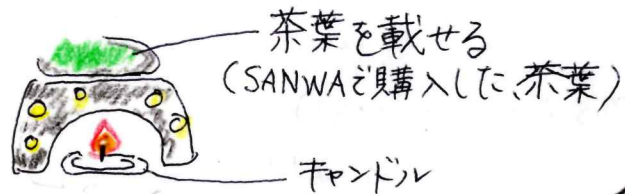 茶葉を載せる
(SANWAで購入した、茶葉)
キャンドル